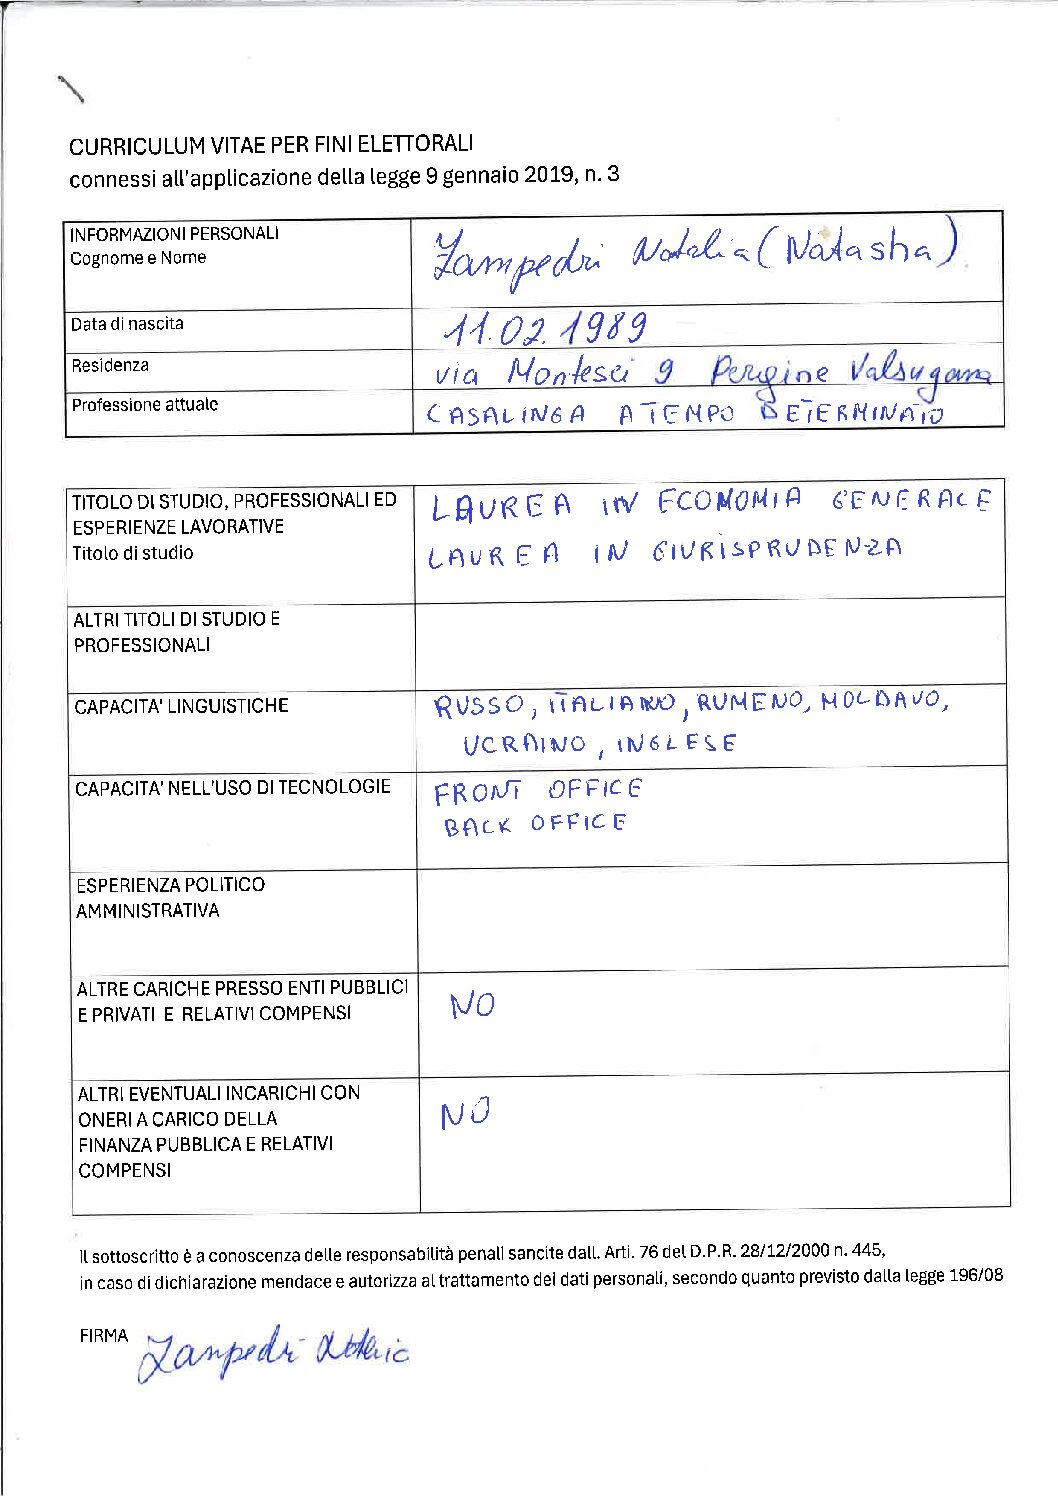 CURRICULUM VITAE PER FINI ELETTORALI
connessi all'applicazione della legge 9 gennaio 2019, n. 3
INFORMAZIONI PERSONALI
Cognome e Nome
Zampedri Natalia (Natasha)
Data di nascita
11.02.1989
Residenza
via Montesei 9 Pergine Valsugana
Professione attuale
CASALINGA A TEMPO DETERMINATO
TITOLO DI STUDIO, PROFESSIONALI ED
ESPERIENZE LAVORATIVE
Titolo di studio
LAUREA IN ECONOMIA GENERALE
LAUREA IN GIURISPRUDENZA
ALTRI TITOLI DI STUDIO E
PROFESSIONALI
CAPACITA' LINGUISTICHE
RUSSO, ITALIANO, RUMENO, MOLDAVO,
UCRAINO, INGLESE
CAPACITA' NELL'USO DI TECNOLOGIE
FRONT OFFICE
BACK OFFICE
ESPERIENZA POLITICO
AMMINISTRATIVA
ALTRE CARICHE PRESSO ENTI PUBBLICI
E PRIVATI E RELATIVI COMPENSI
NO
ALTRI EVENTUALI INCARICHI CON
ONERI A CARICO DELLA
FINANZA PUBBLICA E RELATIVI
COMPENSI
NO
Il sottoscritto è a conoscenza delle responsabilità penali sancite dall. Arti. 76 del D.P.R. 28/12/2000 n. 445,
in caso di dichiarazione mendace e autorizza al trattamento dei dati personali, secondo quanto previsto dalla legge 196/08
FIRMA Zampedri Natalia